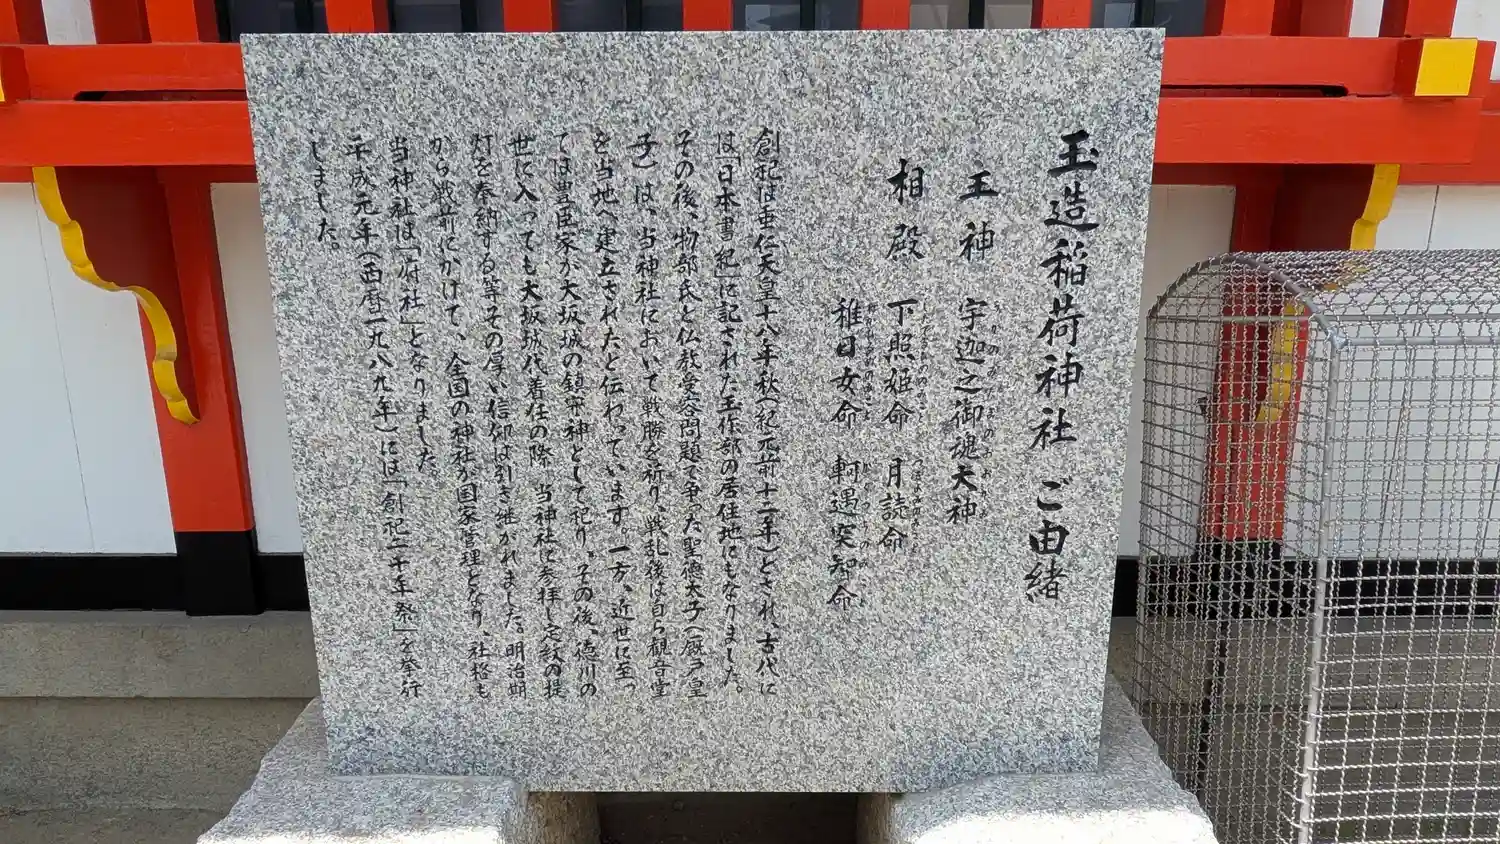 玉造稲荷神社 ご由緒
主神 宇迦之御魂大神
相殿 下照姫命 月読命
稚日女命 軻遇突知命
創祀は垂仁天皇十八年秋(紀元前十二年)とされ、古代に
は「日本書紀」に記された玉作部の居住地にもなりました。
その後、物部氏と仏教受容問題で争った聖徳太子(厩戸皇
子)は、当神社において戦勝を祈り、戦乱後は自ら観音堂
を当地へ建立されたと伝わっています。一方、近世に至っ
ては豊臣家が大坂城の鎮守神として祀り、その後、徳川の
世に入っても大坂城代着任の際、当神社に参拝し定紋の提
灯を奉納する等その厚い信仰は引き継がれました。明治期
から戦前にかけて、全国の神社が国家管理となり、社格も
当神社は「府社」となりました。
平成元年(西暦一九八九年)には「創祀二千年祭」を挙行
しました。